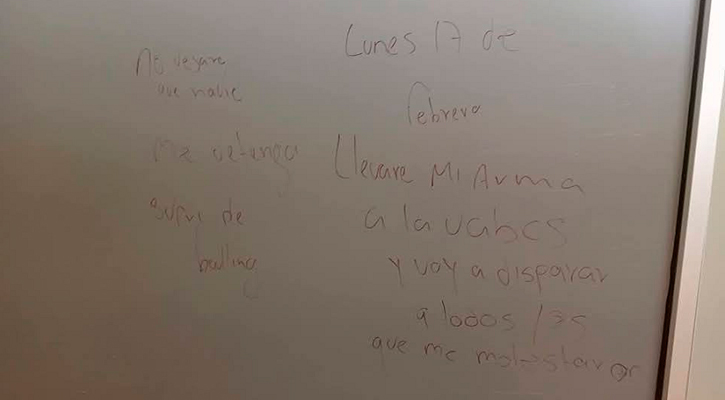 Lunes 17 de
febrero
Llevare Mi Arma
a la uabcs
y voy a disparar
a todos /as
que me molestaron
No dejare
que nadie
me detenga
Sufri de
bulling